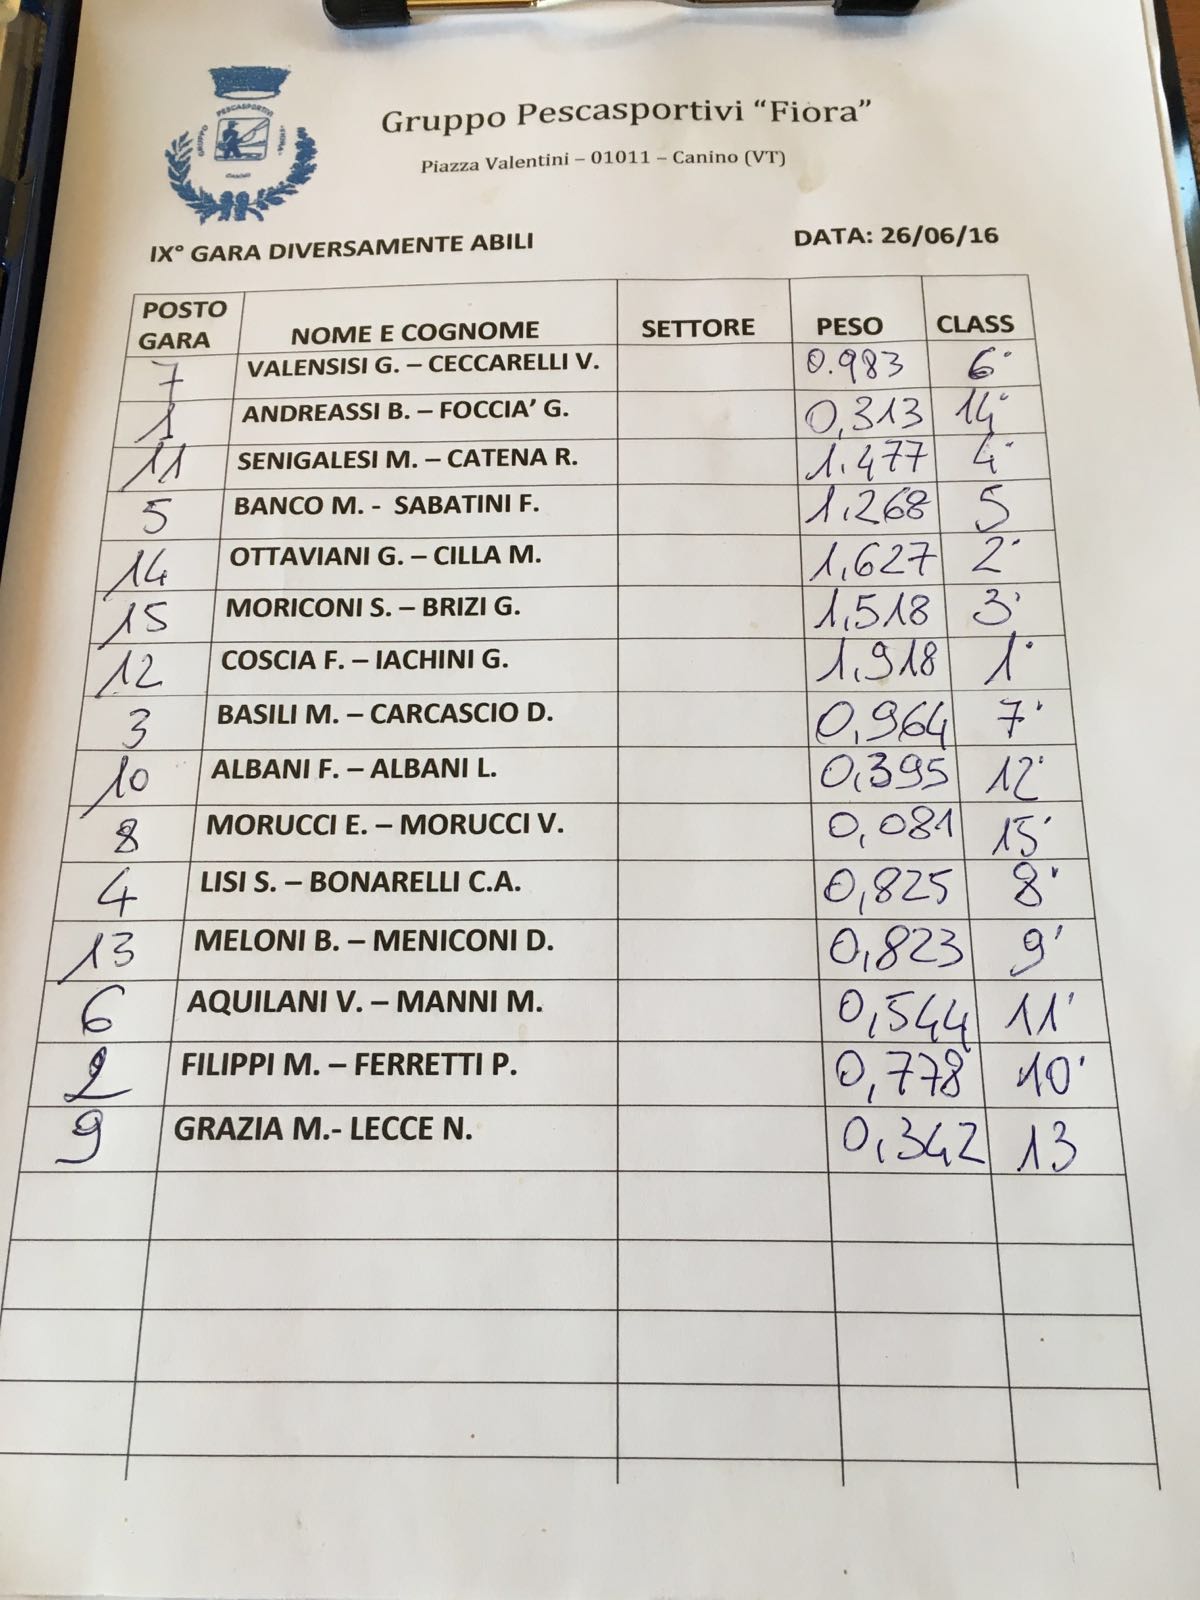 PESCASPORTIVI
GRUPPO
CANINO
Gruppo Pescasportivi “Fiora”
Piazza Valentini – 01011 – Canino (VT)
IX° GARA DIVERSAMENTE ABILI DATA: 26/06/16
POSTO GARA NOME E COGNOME SETTORE PESO CLASS
7 VALENSISI G. – CECCARELLI V. 0.983 6°
1 ANDREASSI B. – FOCCIA’ G. 0,313 14°
11 SENIGALESI M. – CATENA R. 1.477 4°
5 BANCO M. - SABATINI F. 1.268 5
14 OTTAVIANI G. – CILLA M. 1,627 2°
15 MORICONI S. – BRIZI G. 1,518 3°
12 COSCIA F. – IACHINI G. 1,918 1°
3 BASILI M. – CARCASCIO D. 0,964 7°
10 ALBANI F. – ALBANI L. 0,395 12°
8 MORUCCI E. – MORUCCI V. 0,081 15°
4 LISI S. – BONARELLI C.A. 0,825 8°
13 MELONI B. – MENICONI D. 0,823 9°
6 AQUILANI V. – MANNI M. 0,544 11°
2 FILIPPI M. – FERRETTI P. 0,778 10°
9 GRAZIA M.- LECCE N. 0,342 13